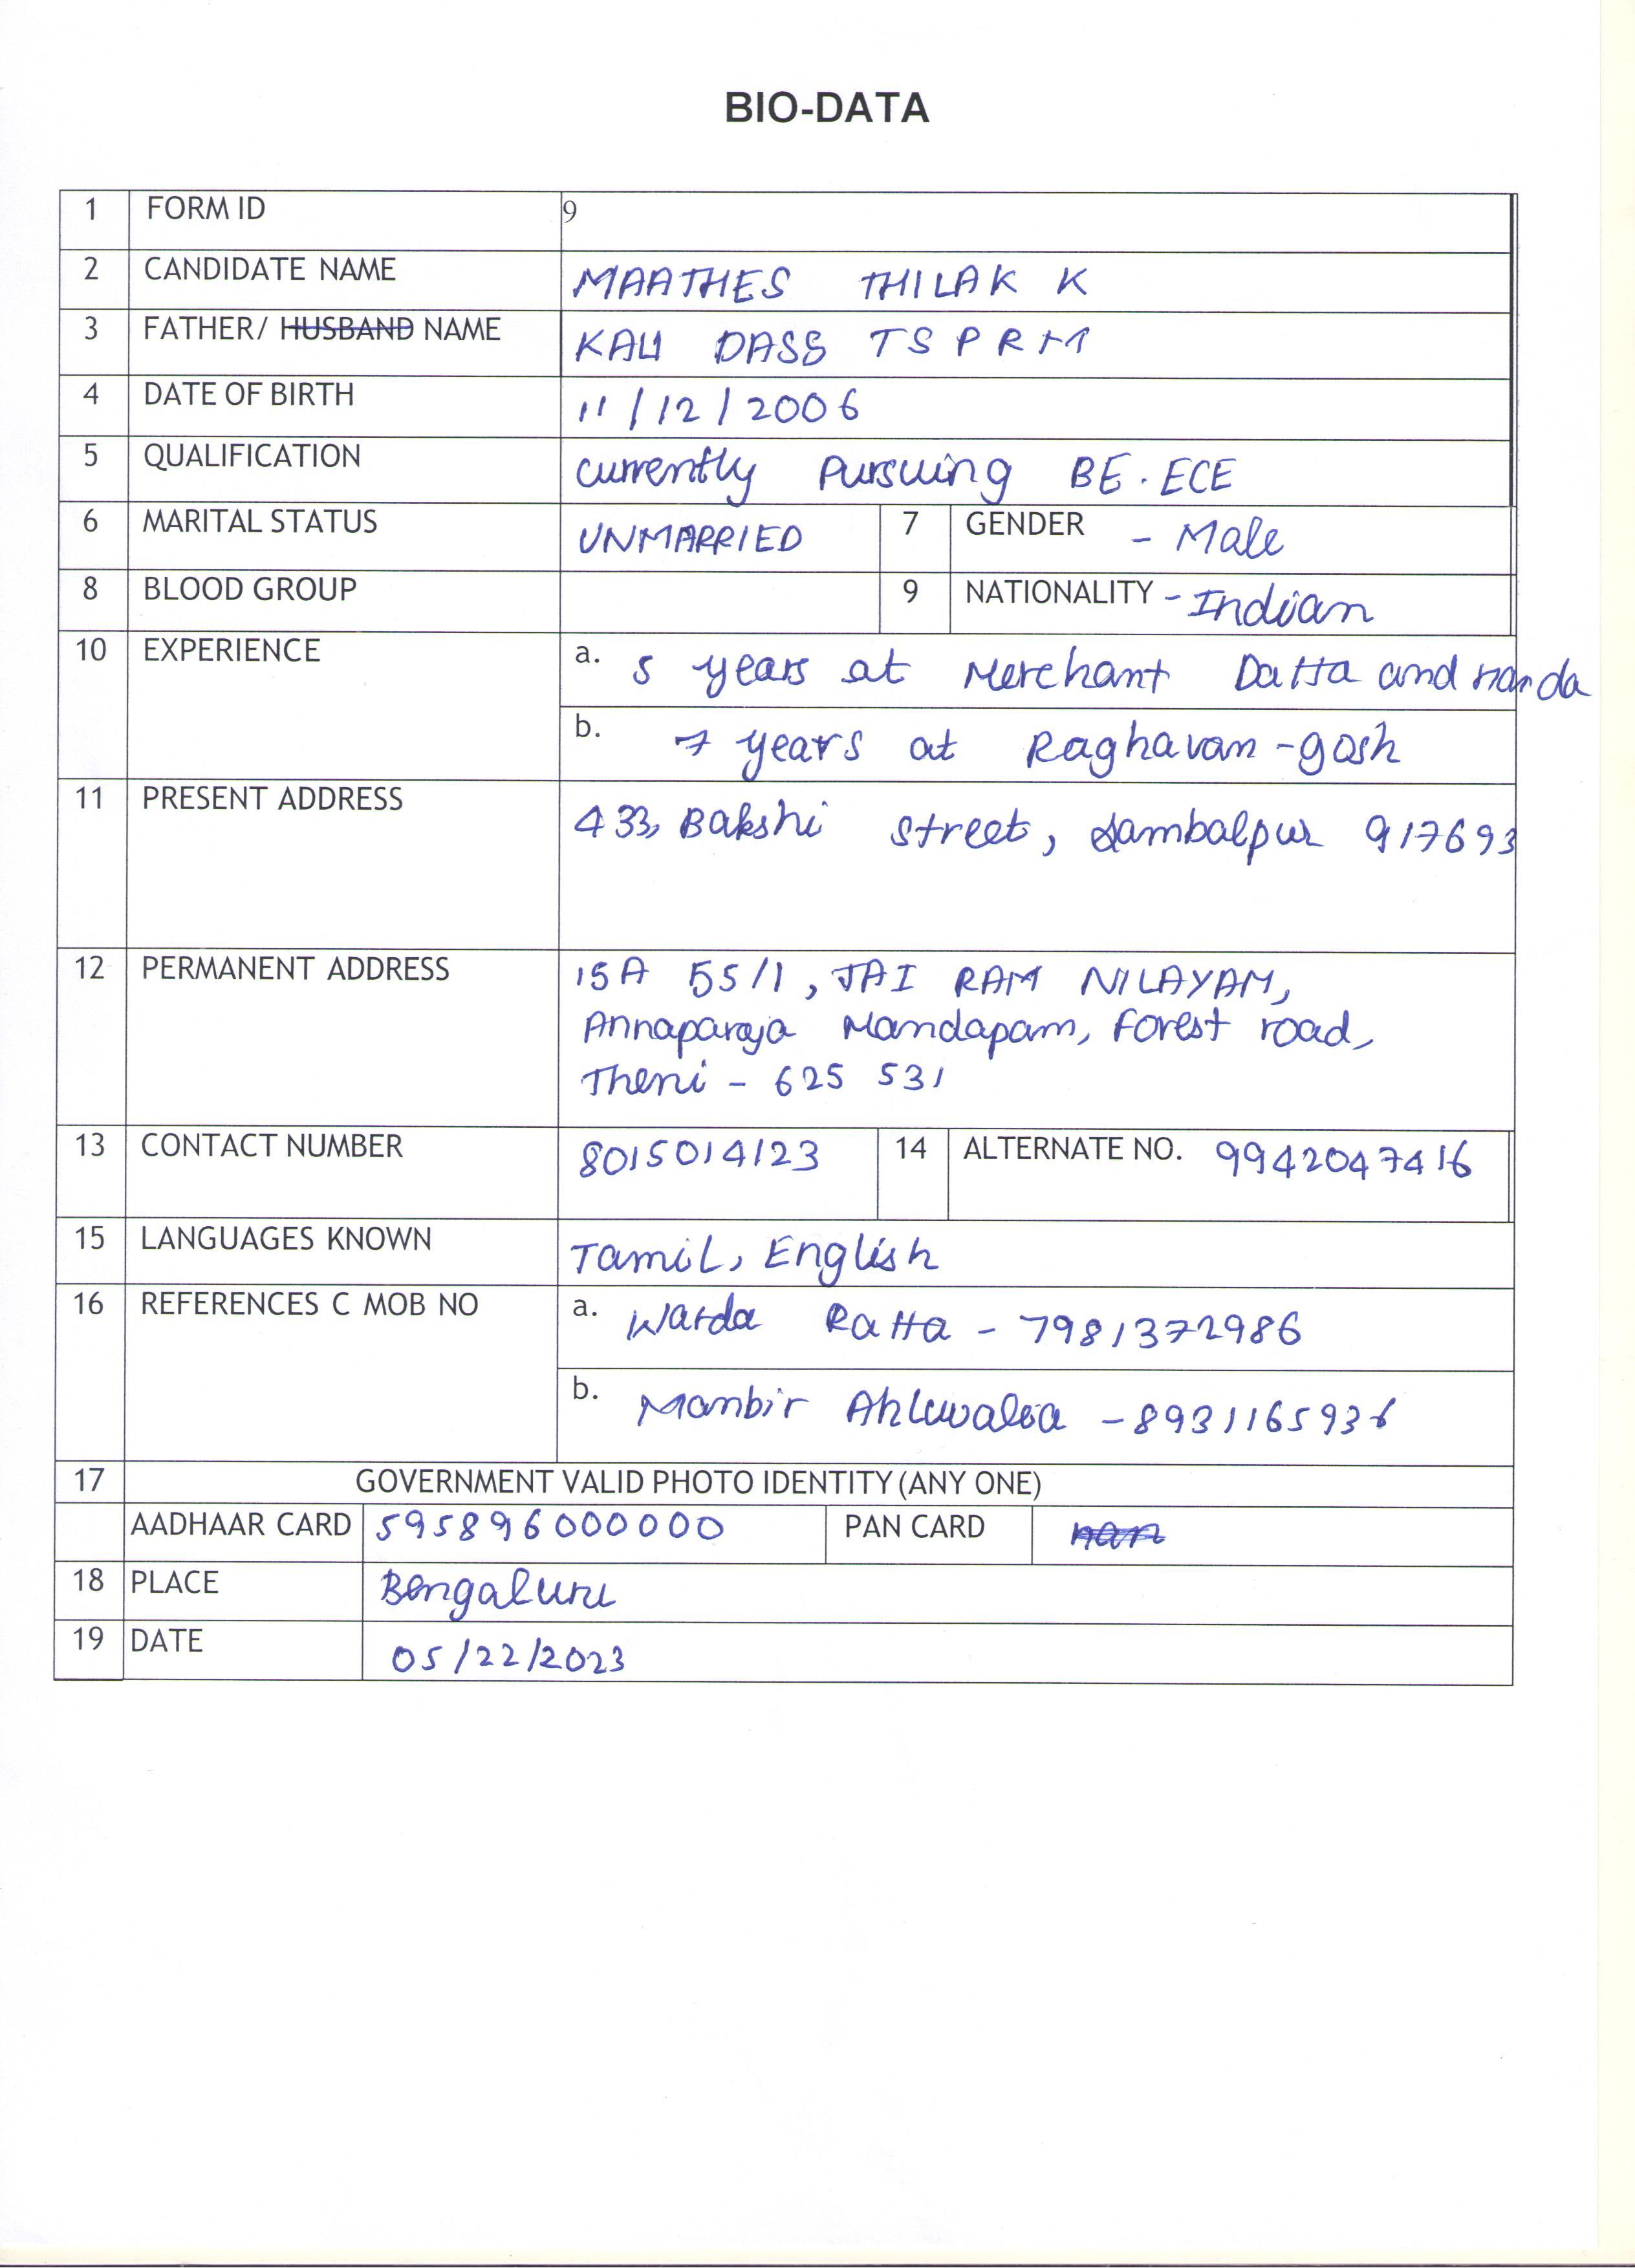 BIO-DATA
1 FORM ID 9
2 CANDIDATE NAME MAATHES THILAK K
3 FATHER/ HUSBAND NAME KALI DASS T S P R M
4 DATE OF BIRTH 11/12/2006
5 QUALIFICATION currently Pursuing BE.ECE
6 MARITAL STATUS UNMARRIED 7 GENDER - Male
8 BLOOD GROUP 9 NATIONALITY - Indian
10 EXPERIENCE a. 5 years at Merchant Datta and nanda
b. 7 years at Raghavan-gosh
11 PRESENT ADDRESS 433, Bakshi street, Sambalpur 917693
12 PERMANENT ADDRESS 15A 55/1, JAI RAM NILAYAM,
Annaparaja Mandapam, Forest road,
Theni - 625 531
13 CONTACT NUMBER 8015014123 14 ALTERNATE NO. 9942047416
15 LANGUAGES KNOWN Tamil, English
16 REFERENCES C MOB NO a. Warda Ratta - 7981372986
b. Manbir Ahluwalia - 8931165936
17 GOVERNMENT VALID PHOTO IDENTITY (ANY ONE)
AADHAAR CARD 595896000000 PAN CARD nan
18 PLACE Bengaluru
19 DATE 05/22/2023